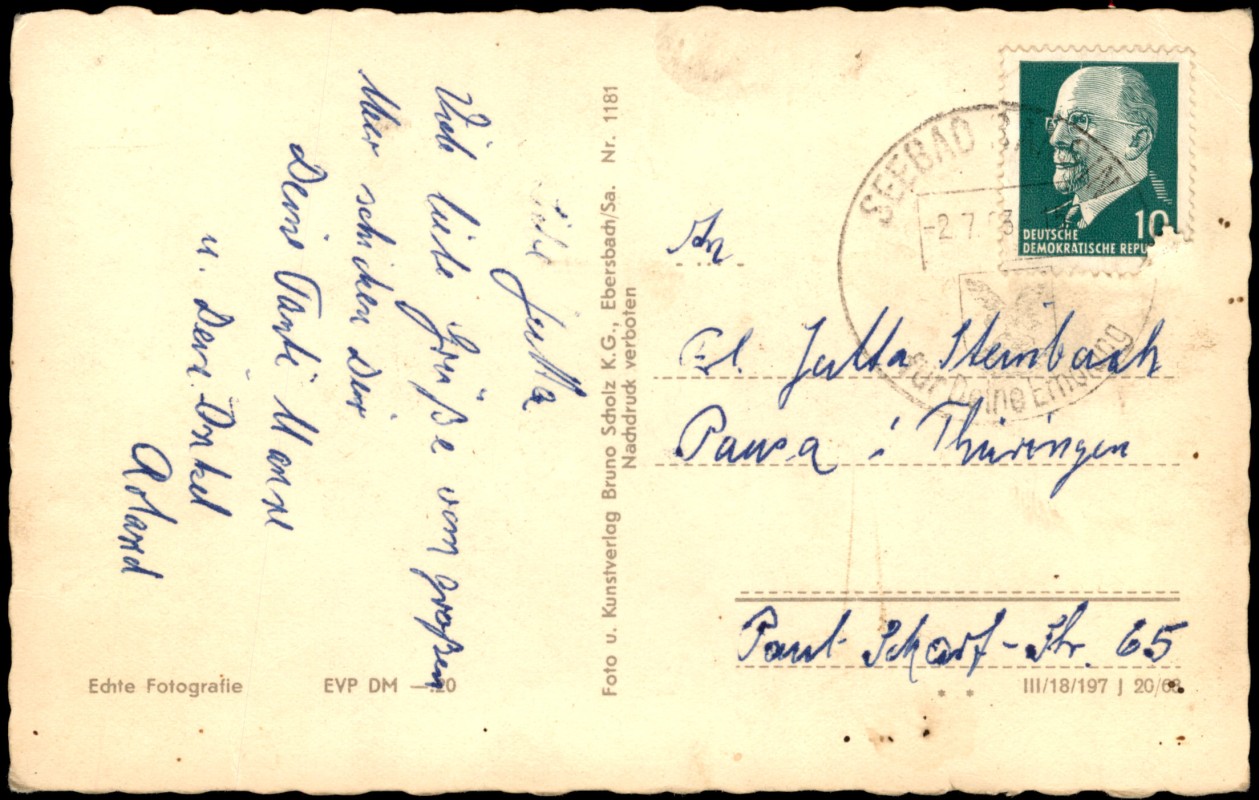 Liebe Jutta
Viele liebe Grüße vom großen
Meer schicken Dir
Deine Tante Hanne
u. Dein Onkel
Roland
Foto u. Kunstverlag Bruno Scholz K.G., Ebersbach/Sa. Nr. 1181
Nachdruck verboten
Echte Fotografie
EVP DM —20
DEUTSCHE
DEMOKRATISCHE REPU
10
SEEBAD BANSIN
-2.7.63
für Deine Erholung
An
Frl. Jutta Steinbach
Pausa i Thüringen
Paul Scharf-Str. 65
III/18/197 J 20/63